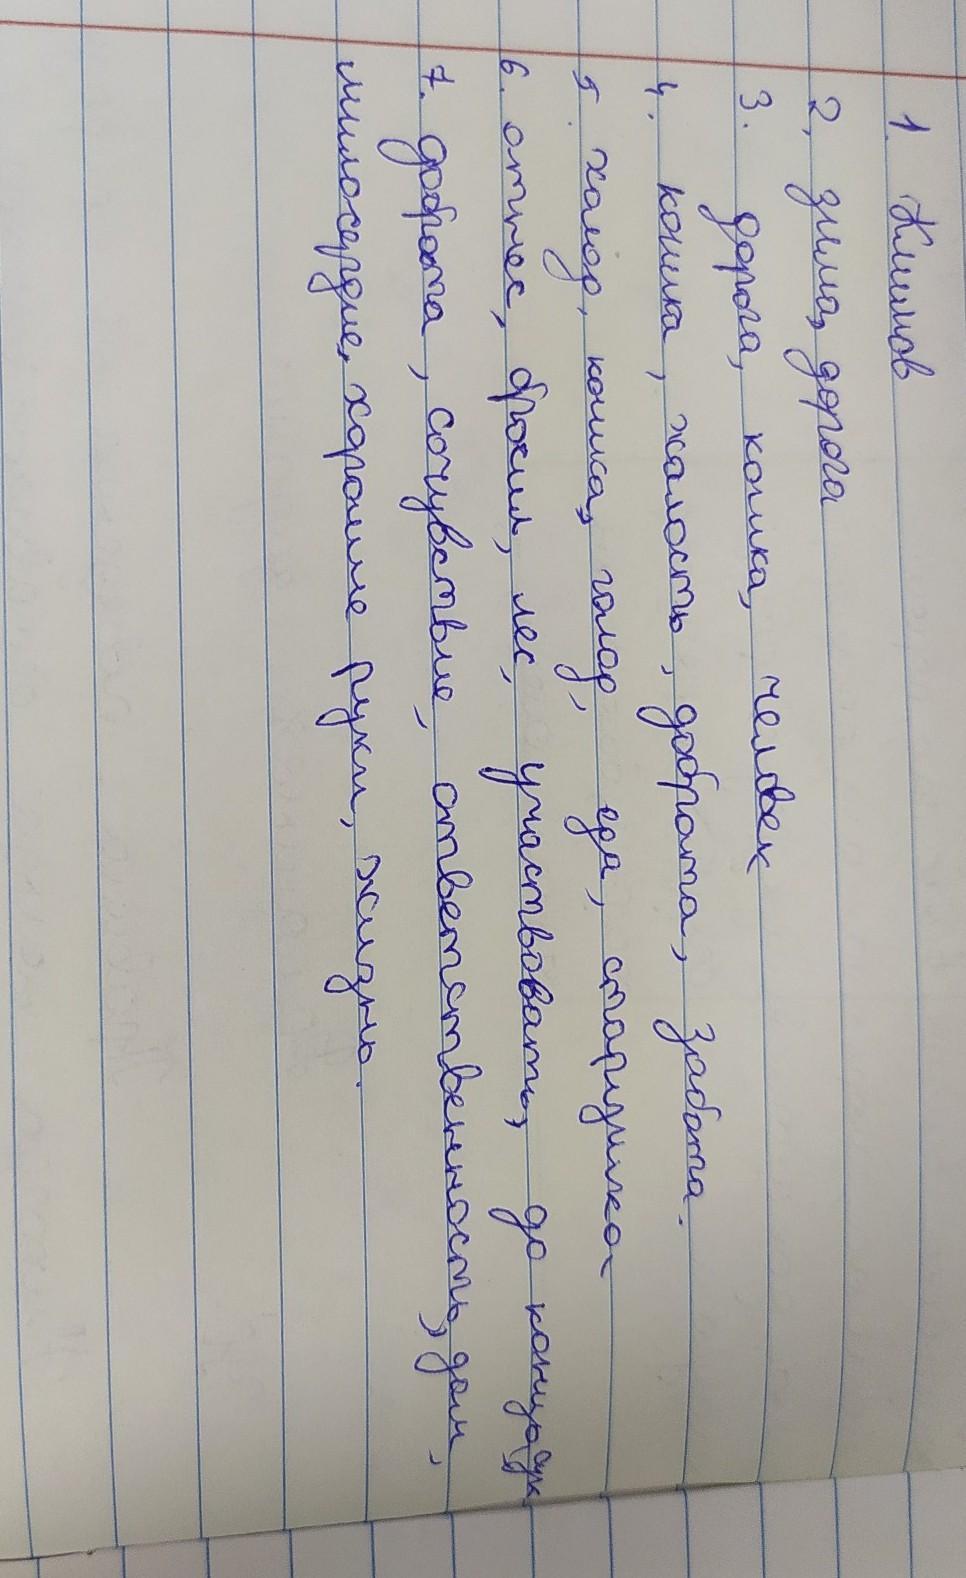 1. Климов
2. зима, дорога
3. дорога, кошка, человек
4. кошка, жалость, доброта, забота.
5. холод, кошка, голод, еда, старушка
6. отнес, бросил, лес, участвовать, до конца
7. доброта, сочувствие, ответственность, дом,
милосердие, хорошие руки, жизнь.